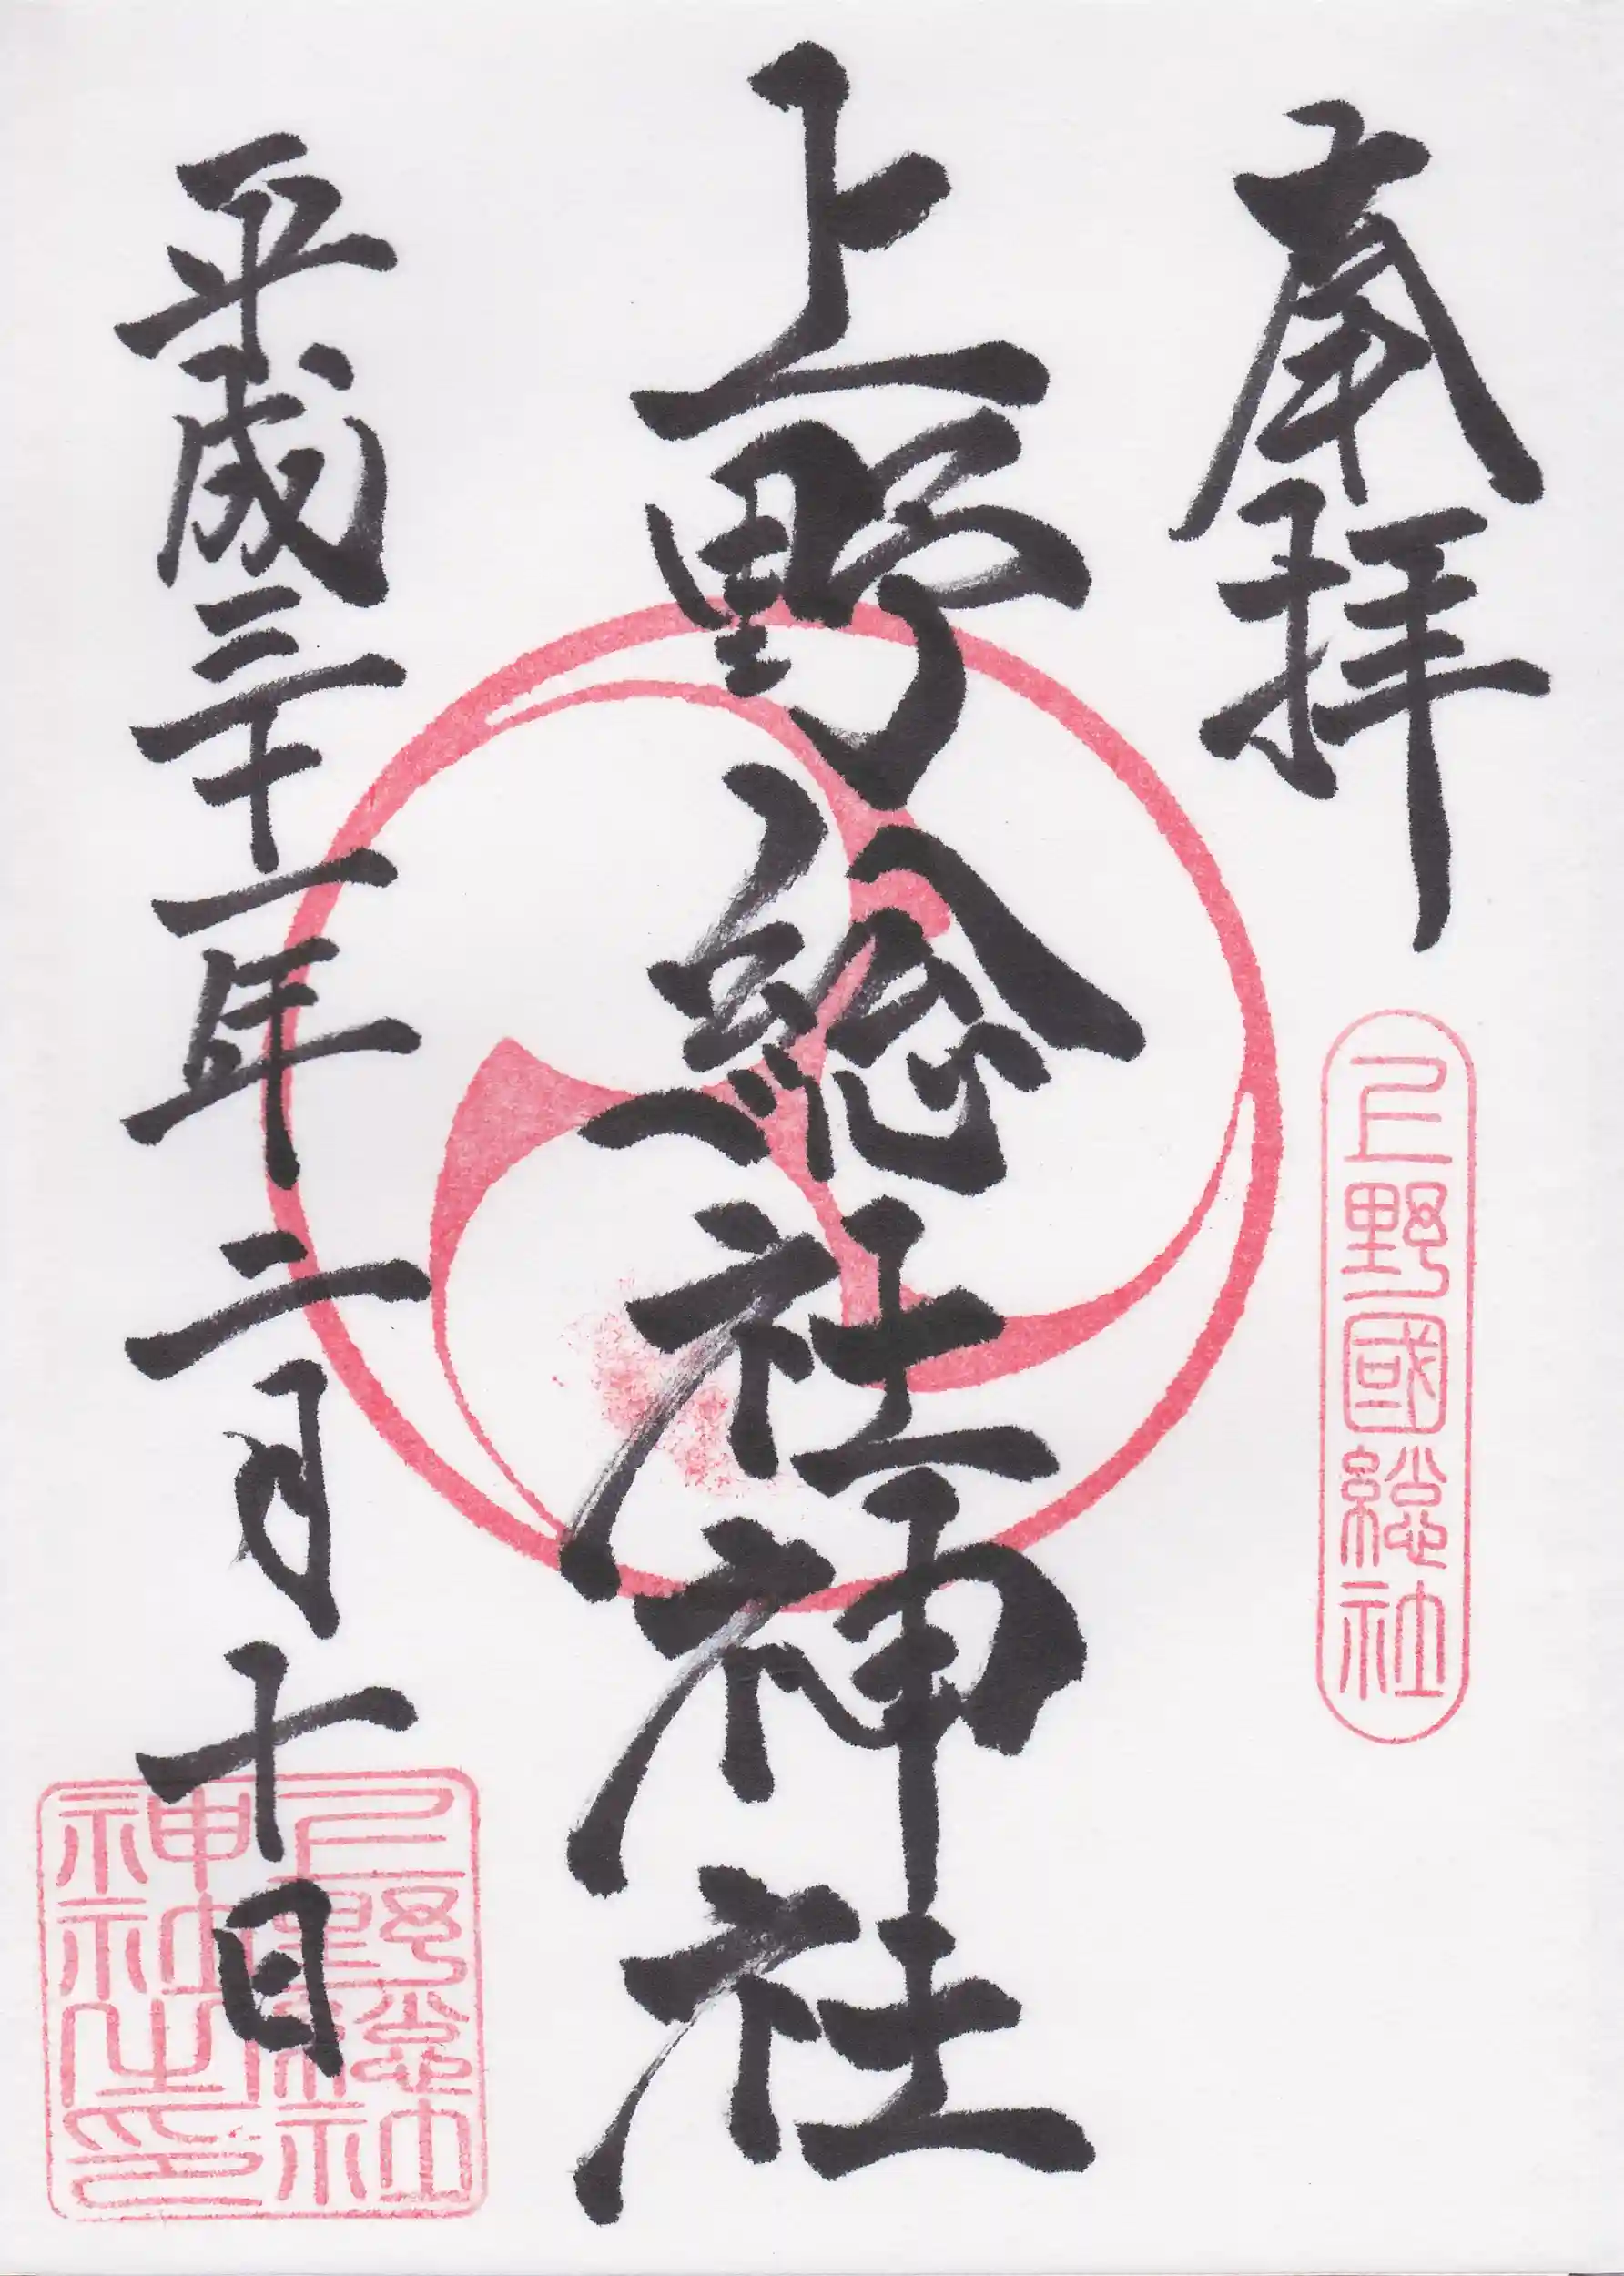 奉拝
上野國総社
上野総社神社
平成三十一年二月十日
上野総社
神社之印